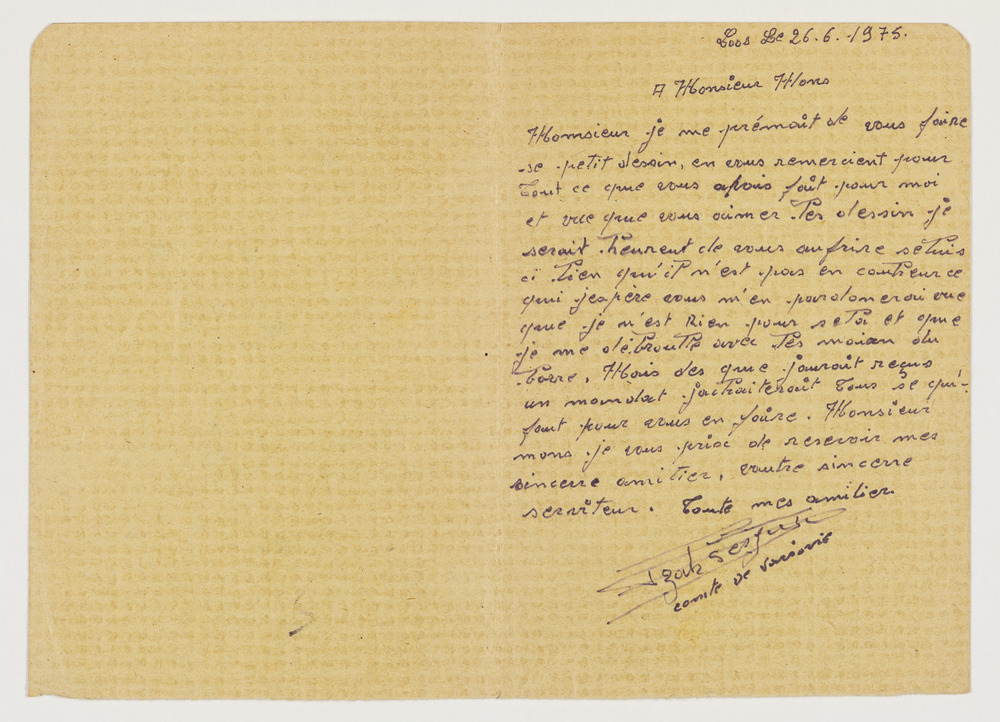 Loos Le 26.6.1975.
A Monsieur Mons
Monsieur je me prémait de vous faire
se petit dessin, en vous remercient pour
Tout ce que vous avois fait pour moi
et vue que vous aimer les dessin je
serait heureut de vous aufrire seluis
ci bien qu'il n'est pas en coulieur ce
qui jespère vous m'en pardonerai vue
que je n'est Rien pour sela et que
je me débroulle avec les moien du
borre, Mais des que jaurait reçus
un mandat jachaiterait Tous se qui-
faut pour vous en faire. Monsieur
mons je vous prie de reservoir mes
sincerre amitier, voutre sincerre
serviteur. Toute mes amitier
comte de varsovie